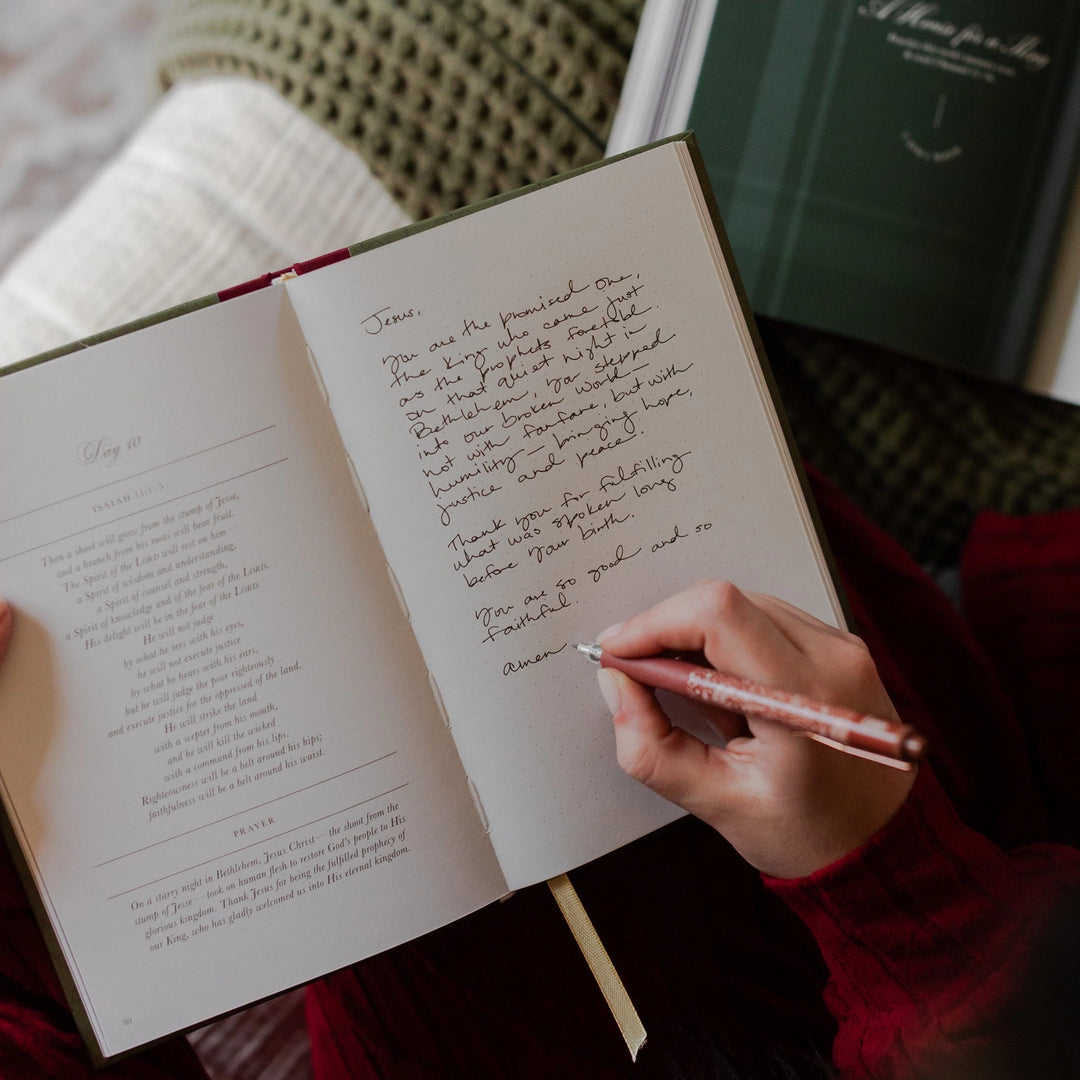 Day 10
ISAIAH 11:1-5
Then a shoot will grow from the stump of Jesse,
and a branch from his roots will bear fruit.
The Spirit of the LORD will rest on him—
a Spirit of wisdom and understanding,
a Spirit of counsel and strength,
a Spirit of knowledge and of the fear of the LORD.
His delight will be in the fear of the LORD.
He will not judge
by what he sees with his eyes,
he will not execute justice
by what he hears with his ears,
but he will judge the poor righteously
and execute justice for the oppressed of the land.
He will strike the land
with a scepter from his mouth,
and he will kill the wicked
with a command from his lips.
Righteousness will be a belt around his hips;
faithfulness will be a belt around his waist.
PRAYER
On a starry night in Bethlehem, Jesus Christ—the shoot from the
stump of Jesse—took on human flesh to restore God's people to His
glorious kingdom. Thank Jesus for being the fulfilled prophecy of
our King, who has gladly welcomed us into His eternal kingdom.
30
Jesus,
you are the promised one,
the King who came just
as the prophets foretold.
on that quiet night in
Bethlehem, you stepped
into our broken world—
not with fanfare, but with
humility—bringing hope,
justice and peace.
Thank you for fulfilling
what was spoken long
before your birth.
you are so good and so
faithful.
amen
A for a